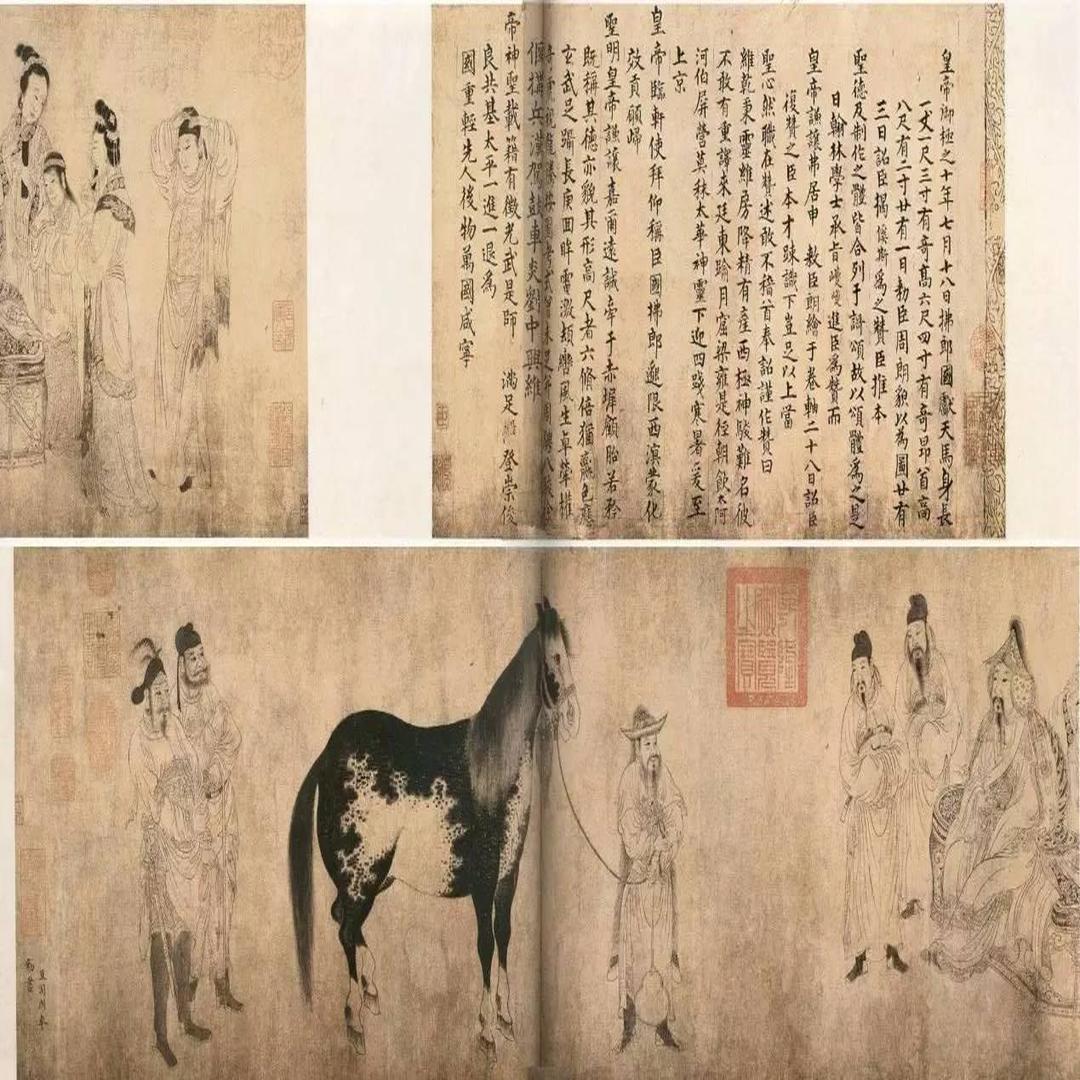 皇帝御極之十年七月十八日拂郎國獻天馬身長
一丈一尺三寸有奇高六尺四寸有奇昂首高
八尺有二寸廿有一日勑臣周朗貌以為圖廿有
三日詔臣揭傒斯為之贊臣推本
聖德及制作之體皆合列于詩頌故以頌體為之是
日翰林學士承旨巙巙進臣為贊而
皇帝謙讓弗居申 敕臣朗繪于卷軸二十八日詔臣
復贊之臣本才踈識下豈足以上當
聖心然職在贊述敢不稽首奉詔謹作贊曰
維乾秉靈維房降精有產西極神駿難名彼
不敢有重譯來廷東踰月窟梁雍是徑朝飲大阿
河伯屏營莫秣太華神靈下迎四踐寒暑爰至
上京
皇帝臨軒使拜仰稱臣國拂郎邈限西溟蒙化
效貢願歸
聖明皇帝謙讓嘉爾遠誠帝于赤墀顧眙若矜
既稱其德亦貌其形高尺者六脩倍猶羸色應
玄武足躡長庚回眸電激頳鬱風生卓犖權
兵謹駕鼓車炎劉中興維
帝神聖載籍有徵光武是師 登崇俊
良共基太平一進一退為
國重輕先人後物萬國咸寧
乾隆御覽之寶